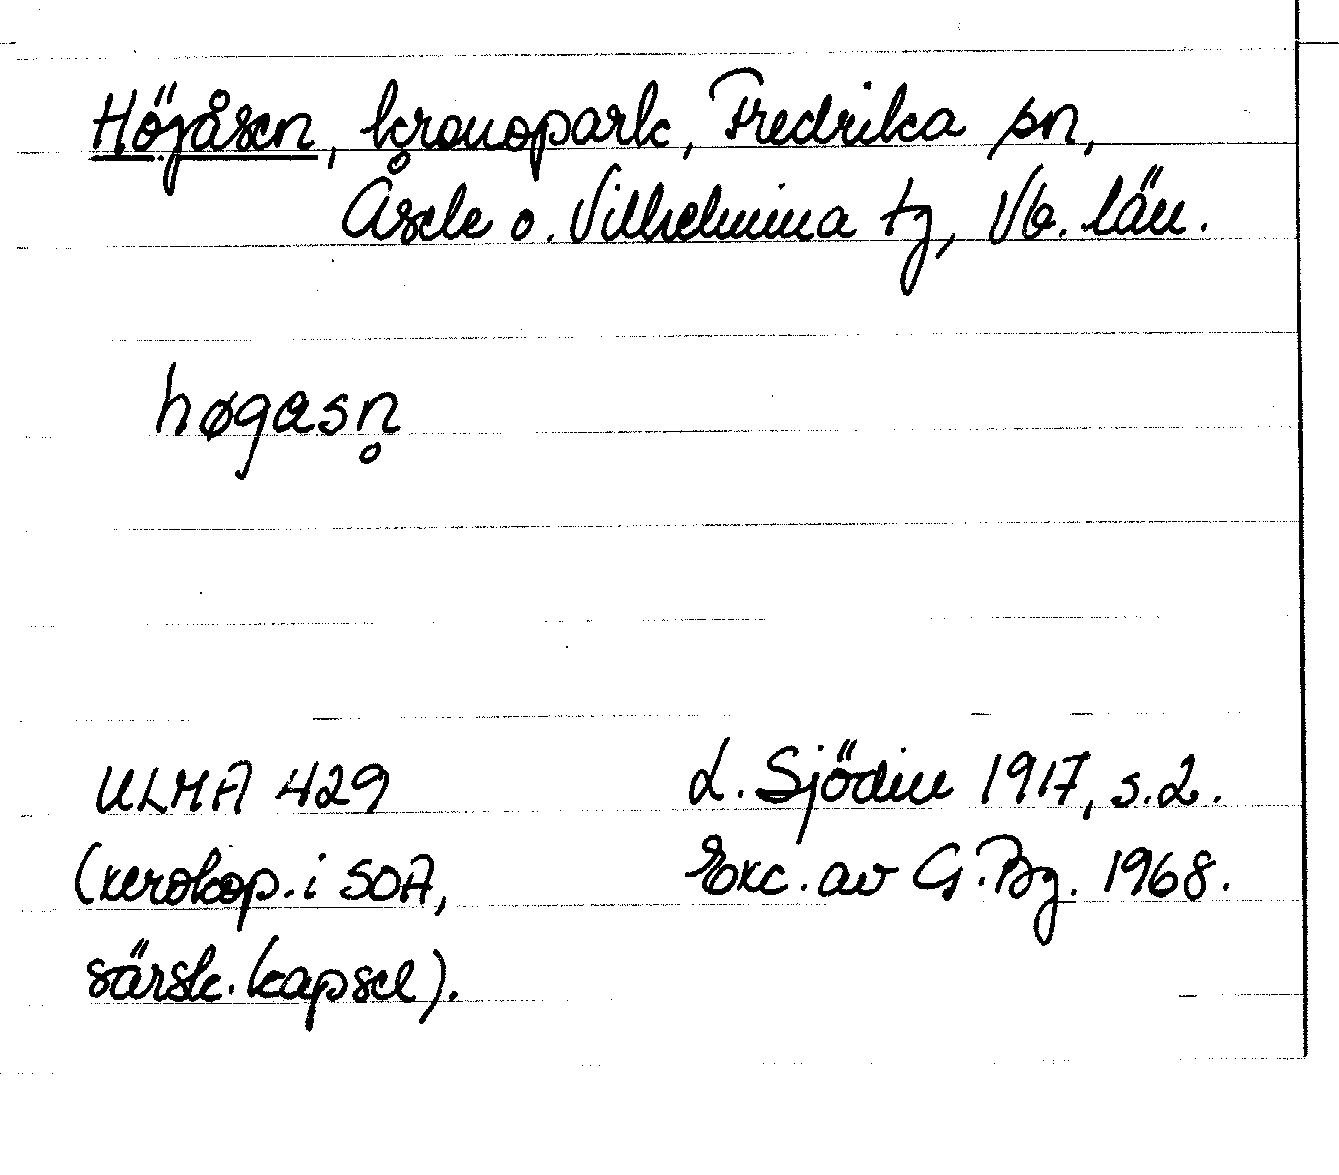 Högåsen, kronopark, Fredrika sn,
Åsele o. Vilhelmina tg, Vb. län.
høgasn̥
ULMA 429
L. Sjödin 1917, s.2.
(xerokop. i SOA,
Exc. av G. Bg. 1968.
särsk. kapsel).